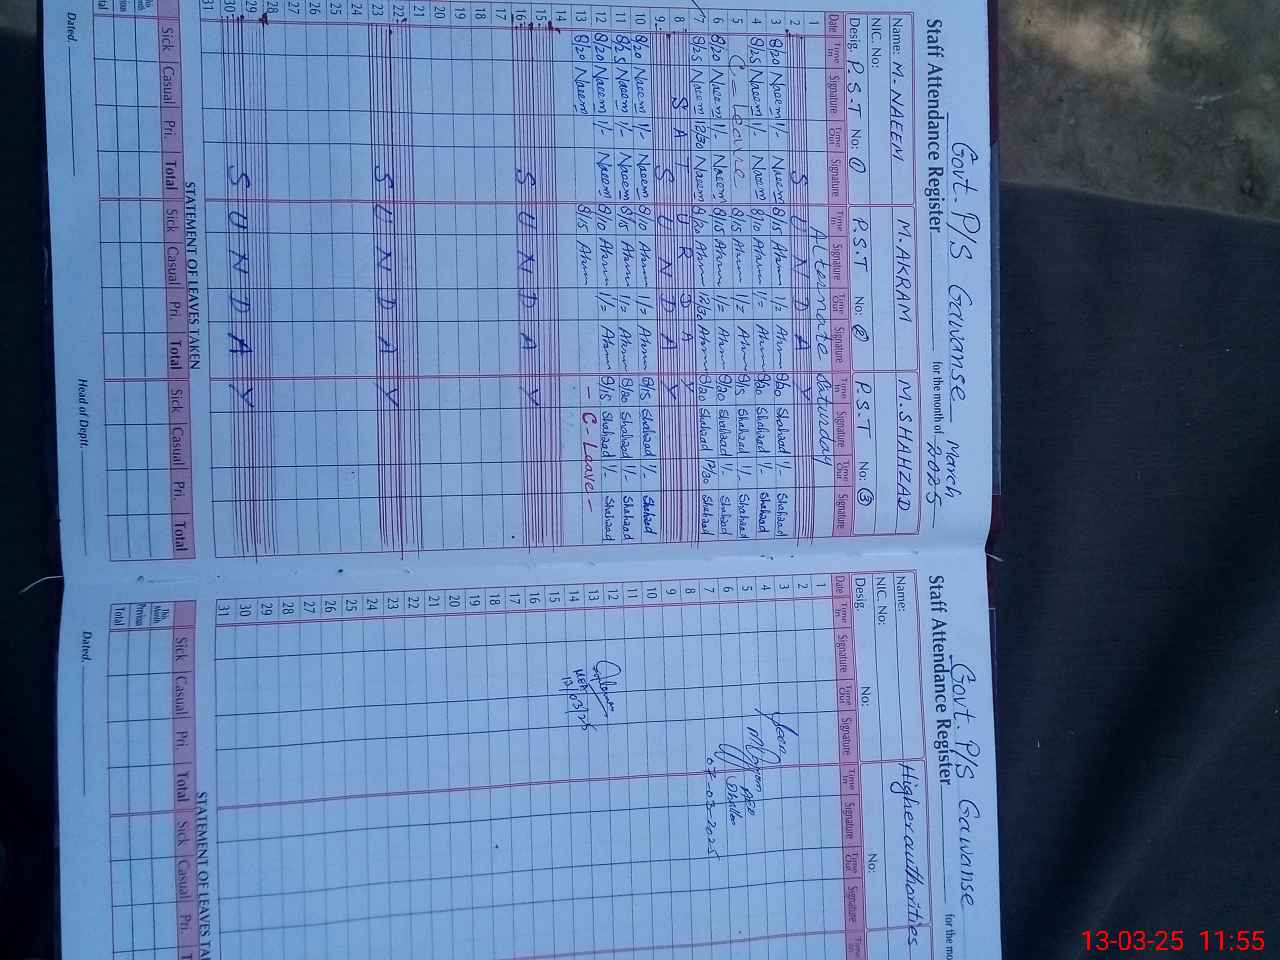 Govt. P/S Gawanse March
Staff Attendance Register for the month of 2025
Name: M. NAEEM M. AKRAM M. SHAHZAD
NIC. No:
Desig. P.S.T No: 1 P.S.T No: 2 P.S.T No: 3
Date Time In Signature Time Out Signature Time In Signature Time Out Signature Time In Signature Time Out Signature
1 Alternate Saturday
2 S U N D A Y
3 8/20 Naeem 1/- Naeem 8/15 1/2 8/20 Shahzad 1/- Shahzad
4 8/25 Naeem 1/- Naeem 8/10 1/2 8/20 Shahzad 1/- Shahzad
5 C - Leave 8/15 1/2 8/15 Shahzad 1/- Shahzad
6 8/20 Naeem 1/- Naeem 8/15 1/2 8/20 Shahzad 1/- Shahzad
7 8/25 Naeem 12/30 Naeem 8/20 12/30 8/20 Shahzad 12/30 Shahzad
8 S A T U R D A Y
9 S U N D A Y
10 8/20 Naeem 1/- Naeem 8/10 1/2 8/15 Shahzad 1/- Shahzad
11 8/25 Naeem 1/- Naeem 8/15 1/2 8/20 Shahzad 1/- Shahzad
12 8/20 Naeem 1/- Naeem 8/10 1/2 8/15 Shahzad 1/- Shahzad
13 8/20 Naeem 8/15 - C - Leave -
14
15
16 S U N D A Y
17
18
19
20
21
22
23 S U N D A Y
24
25
26
27
28
29
30 S U N D A Y
31
STATEMENT OF LEAVES TAKEN
Sick Casual Pri. Total Sick Casual Pri. Total Sick Casual Pri. Total
Dated. Head of Deptt.
Govt. P/S Gawanse
Staff Attendance Register for the mo
Name: Higher authorities
NIC. No:
Desig. No: No:
Date Time In Signature Time Out Signature Time In Signature Time Out Signature
1
2
3
4
5
6
7 07-03-2025
8
9
10
11
12
13
14 13/03/25
15
16
17
18
19
20
21
22
23
24
25
26
27
28
29
30
31
STATEMENT OF LEAVES TA
Sick Casual Pri. Total Sick Casual Pri.
This Month
Previous
Total
Dated.
13-03-25 11:55